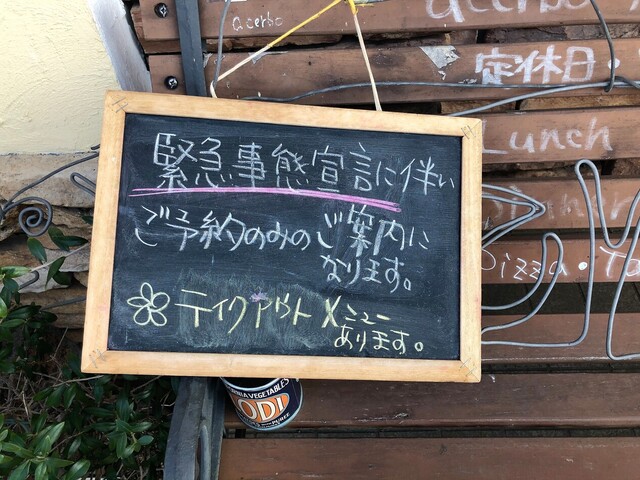 acerbo
acerbo
定休日・
Lunch
緊急事態宣言に伴い
ご予約のみのご案内に
なります。
テイクアウトメニュー
あります。
Pizza・
VEGETABLES
ODI